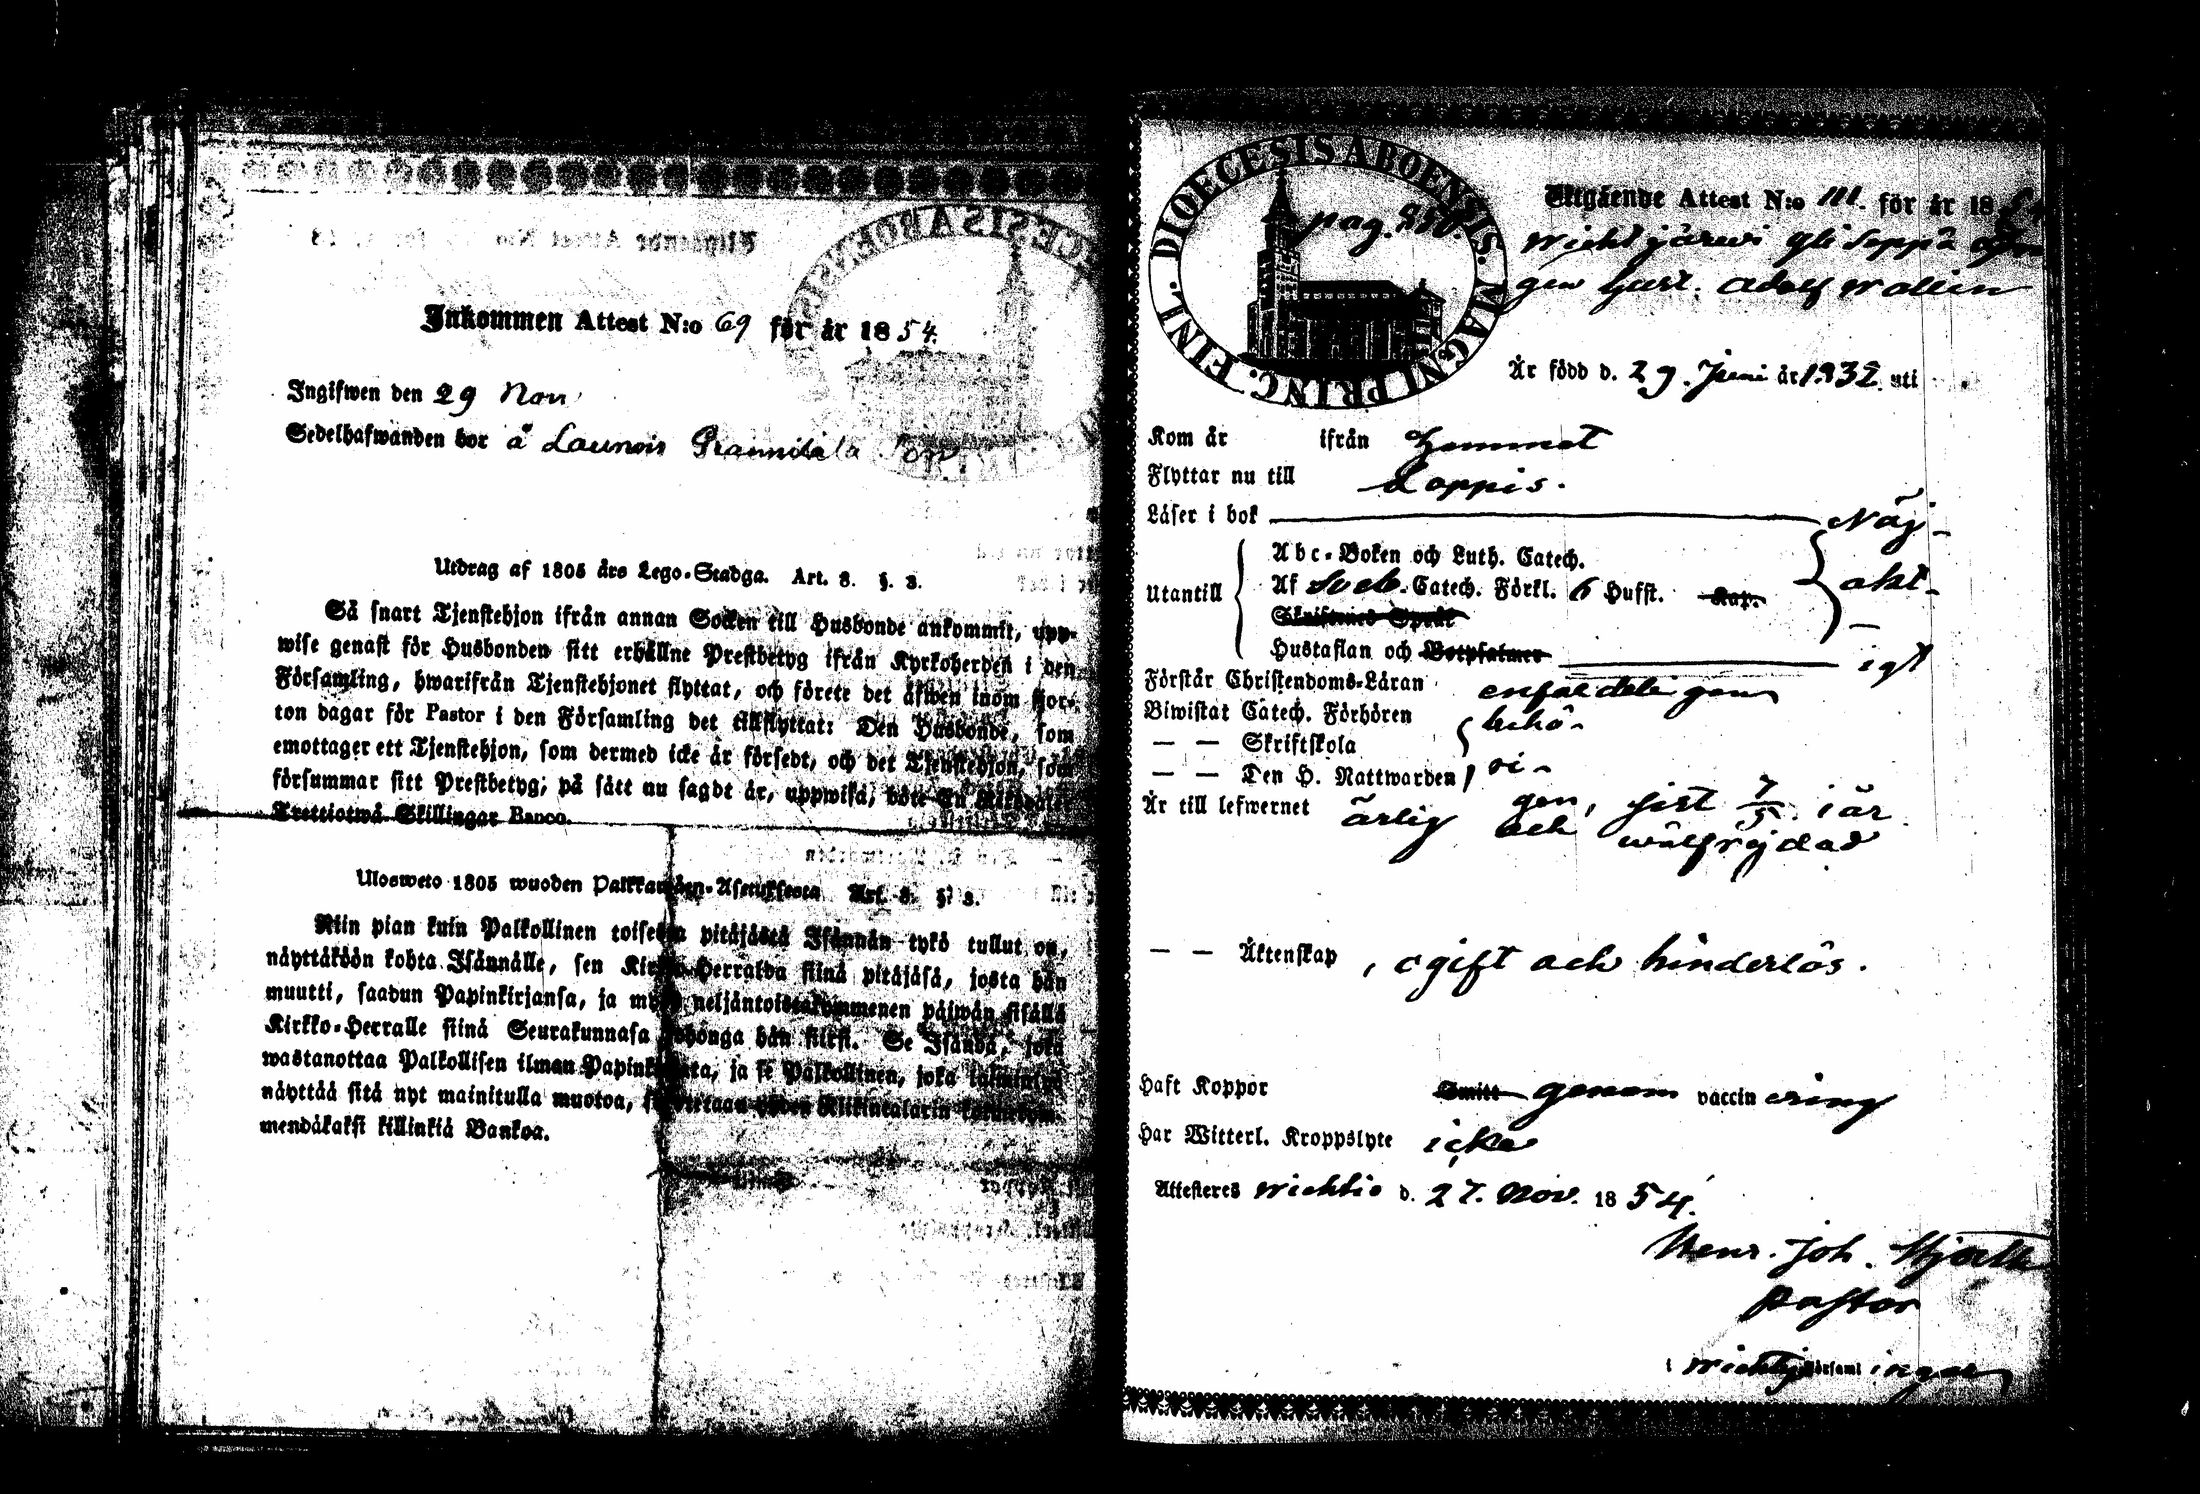 Inkommen Attest N:o 69 för år 1854.
Ingifwen den 29 Nov
Sedelhafwanden bor å Launois
Utdrag af 1805 års Lego-Stadga. Art. 8. §. 3.
Så snart Tjenstehjon ifrån annan Socken till Husbonde ankommit, upp-
wise genast för Husbonden sitt erhållne Prestbetyg ifrån Kyrkoherden i den
Församling, hwarifrån Tjenstehjonet flyttat, och förete det äfwen inom fjor-
ton dagar för Pastor i den Församling det tillflyttat: Den Husbonde, som
emottager ett Tjenstehjon, som dermed icke är försedt, och det Tjenstehjon, som
försummar sitt Prestbetyg, på sätt nu sagdt är, uppwisa, böte En Riksdaler
Trettiotwå Skillingar Banco.
Ulosweto 1805 wuoden Palkkawäen-Asetuksesta Art. 8. §. 3.
Niin pian kuin Palkollinen toisesta pitäjästä Isännän tykö tullut on,
näyttäköön kohta Isännälle, sen Kirkko-Herralda siinä pitäjäsä, josta hän
muutti, saadun Papinkirjansa, ja myös neljäntoistakymmenen päiwän sisällä
Kirkko-Herralle siinä Seurakunnasa johonga hän siirsi. Se Isändä, joka
wastanottaa Palkollisen ilman Papinkirjata, ja se Palkollinen, joka laiminlyö
näyttää sitä nyt mainitulla muotoa, yhden Riikintalarin
mendäkaksi killinkiä Bankoa.
DIOECESIS ABOENSIS. MAGNI PRINC. FINL.
pag. 850.
Utgående Attest N:o 111. för år 1854
Wichtjärwi Yli Seppä
gen Gust. Adolf Wallin
Är född d. 29. Juni år 1832. uti
Kom år ifrån hemmet
Flyttar nu till Loppis.
Läser i bok Nöj-
Utantill Abc-Boken och Luth. Catech.
Af Sveb. Catech. Förkl. 6 Hufst. Kap. akt-
Skriftenes Språk
Hustaflan och Botpsalmer igt
Förstår Christendoms-Läran enfaldeligen
Biwistat Catech. Förhören behö-
— — Skriftskola
— — Den H. Nattwarden ri-
gen, sist 7/5 i år.
Är till lefwernet ärlig och wälfrejdad
— — Äktenskap, ogift och hinderlös.
Haft Koppor Smitt genom vaccinering
Har Witterl. Kroppslyte icke
Attesteres Wichtis d. 27. Nov. 1854.
Henr. Joh. Hjorth
Pastor
i Wichtis Församlingar